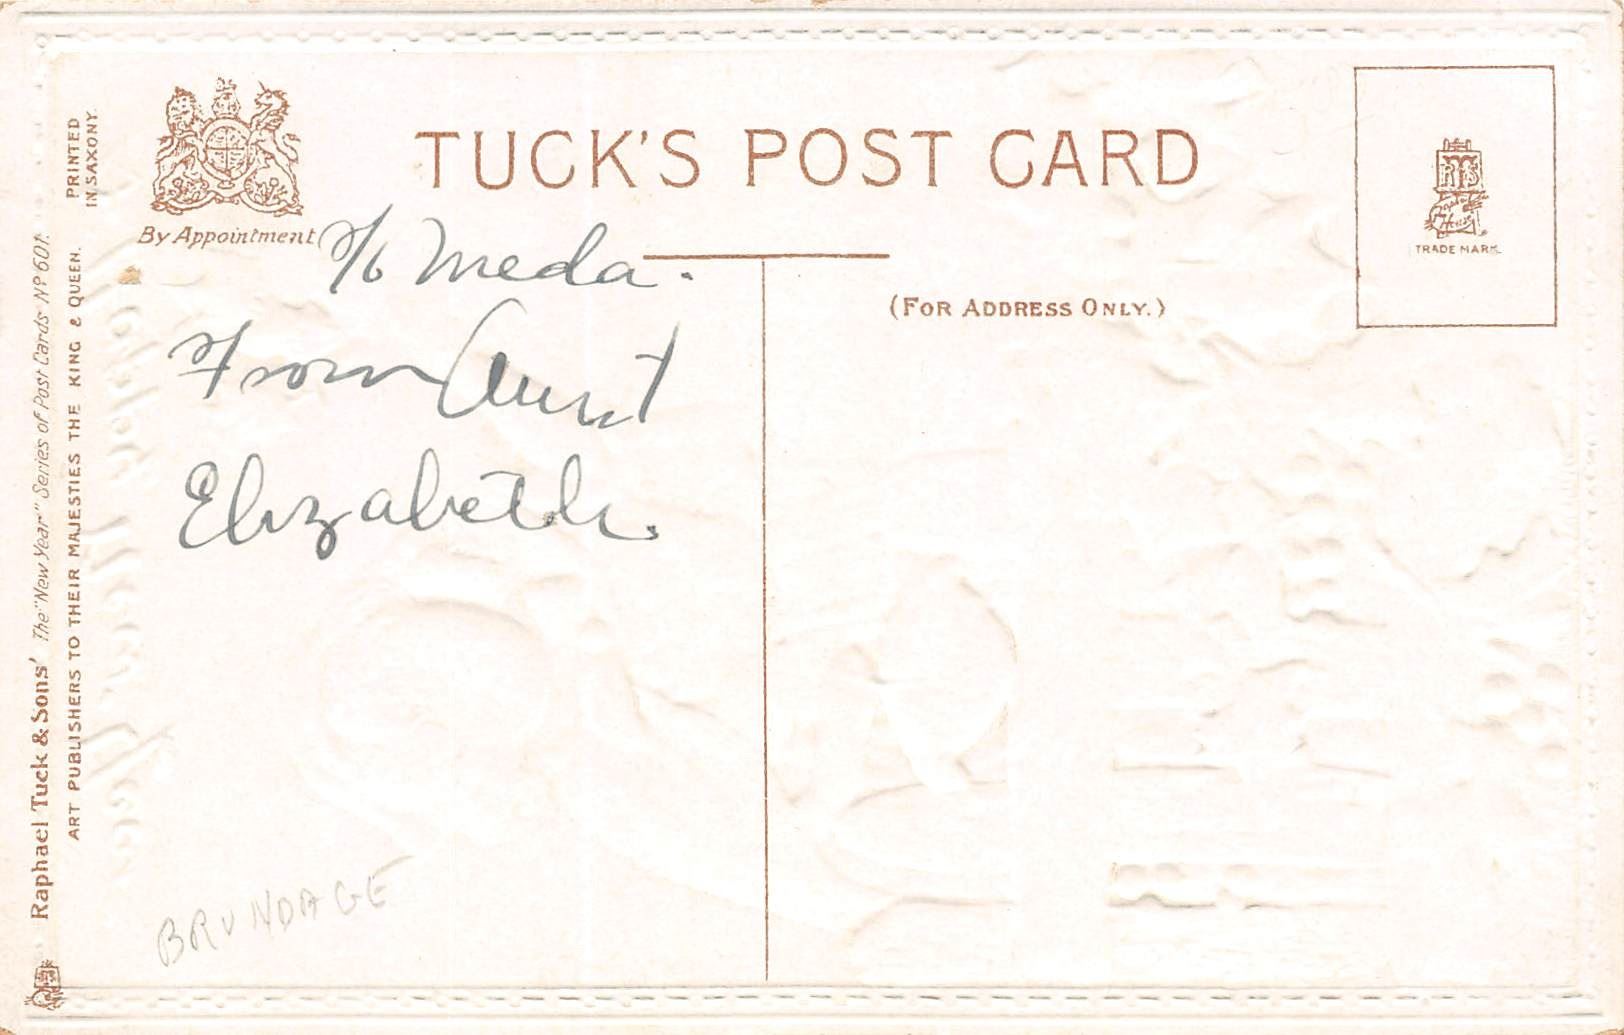 TUCK'S POST CARD
By Appointment
To Meda.
From Aunt
Elizabeth.
(FOR ADDRESS ONLY.)
RTS
Raphael
House
TRADE MARK
PRINTED
IN SAXONY.
Raphael Tuck & Sons' The "New Year" Series of Post Cards Nº 601.
ART PUBLISHERS TO THEIR MAJESTIES THE KING & QUEEN.
BRUNDAGE